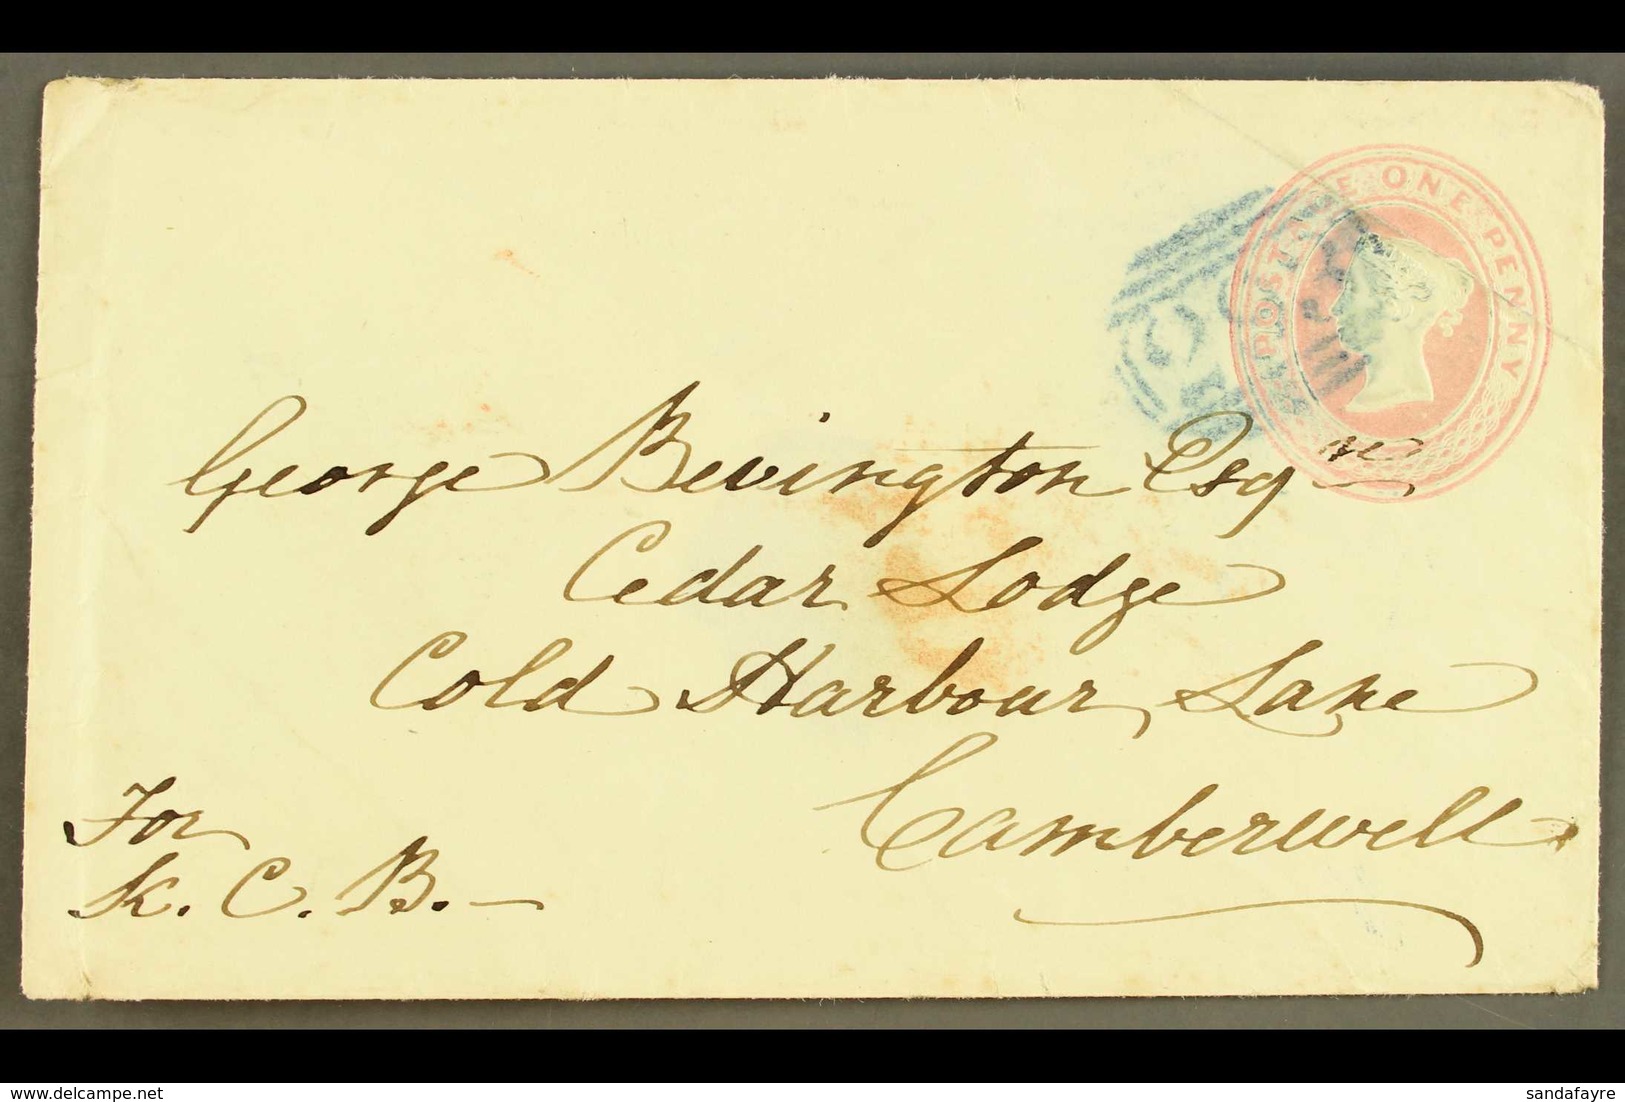 POSTAGE ONE PENNY
George Bevington Esqre
Cedar Lodge
Cold Harbour Lane
Camberwell
For
K. C. B. —
www.delcampe.net
sandafayre